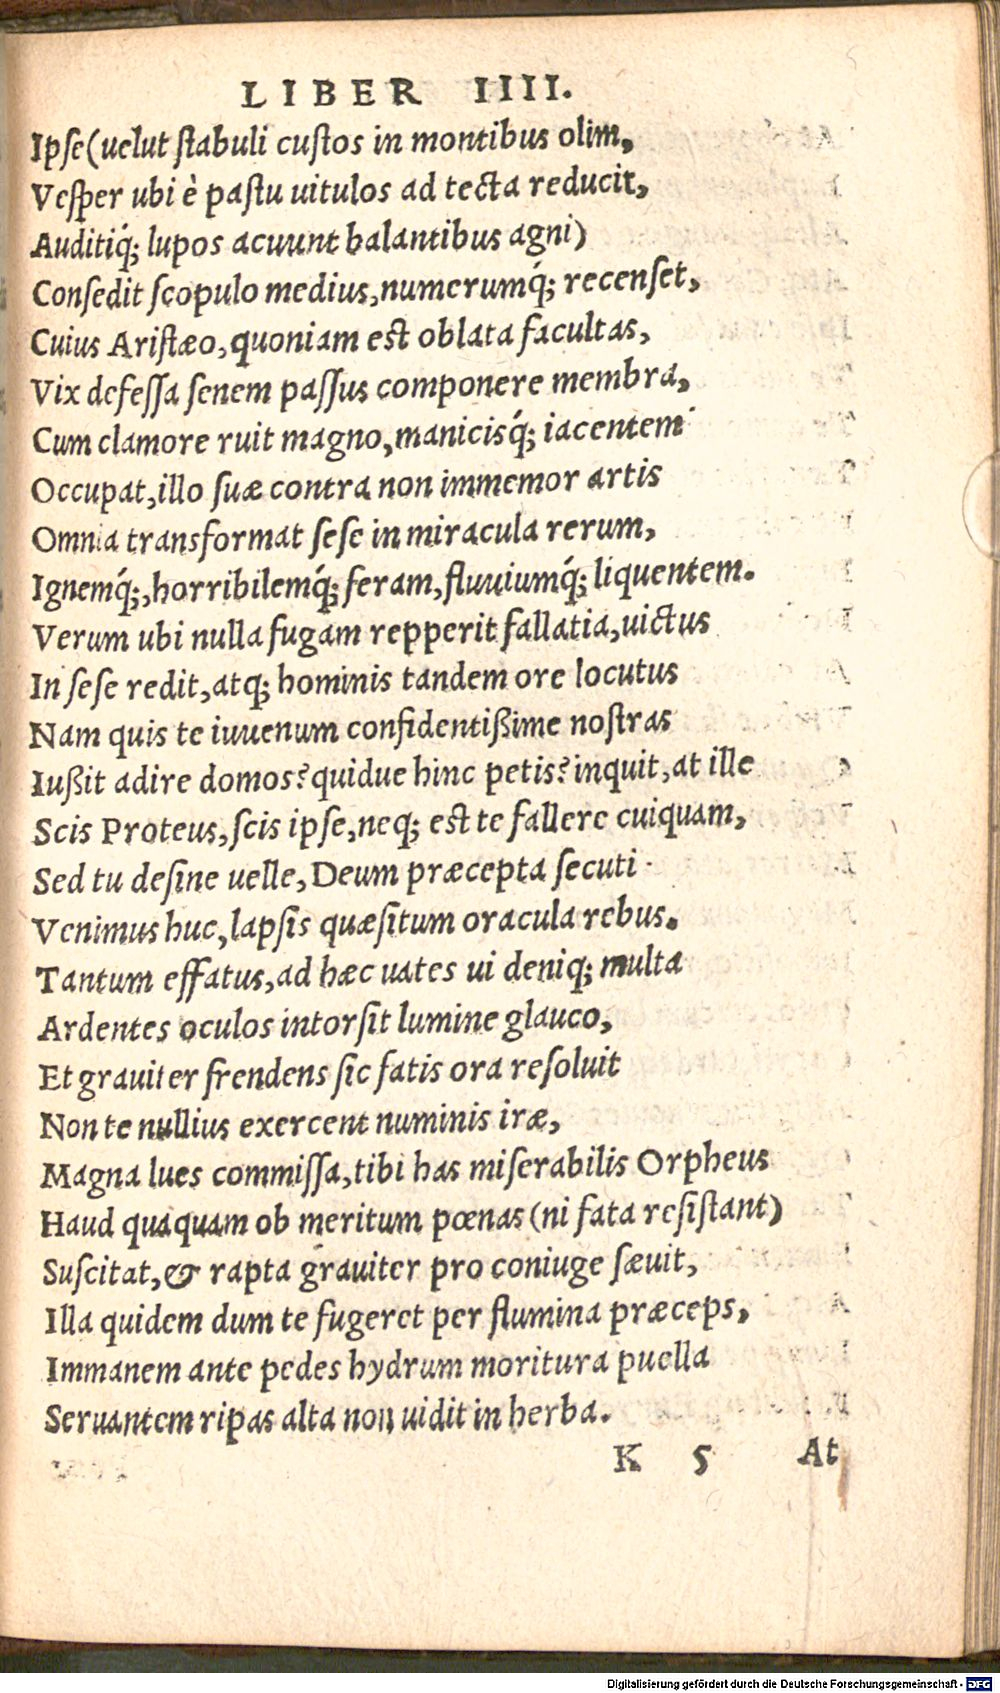 LIBER IIII.
Ipse (uelut stabuli custos in montibus olim,
Vesper ubi è pastu uitulos ad tecta reducit,
Auditiq́; lupos acuunt balantibus agni)
Consedit scopulo medius, numerumq́; recenset,
Cuius Aristæo, quoniam est oblata facultas,
Vix defessa senem passus componere membra,
Cum clamore ruit magno, manicisq́; iacentem
Occupat, illo suæ contra non immemor artis
Omnia transformat sese in miracula rerum,
Ignemq́;, horribilemq́; feram, fluuiumq́; liquentem.
Verum ubi nulla fugam repperit fallatia, uictus
In sese redit, atq; hominis tandem ore locutus
Nam quis te iuuenum confidentißime nostras
Iußit adire domos? quidue hinc petis? inquit, at ille
Scis Proteus, scis ipse, neq; est te fallere cuiquam,
Sed tu desine uelle, Deum præcepta secuti
Venimus huc, lapsis quæsitum oracula rebus.
Tantum effatus, ad hæc uates ui deniq; multa
Ardentes oculos intorsit lumine glauco,
Et grauiter frendens sic fatis ora resoluit
Non te nullius exercent numinis iræ,
Magna lues commissa, tibi has miserabilis Orpheus
Haud quaquam ob meritum pœnas (ni fata resistant)
Suscitat, & rapta grauiter pro coniuge sæuit,
Illa quidem dum te fugeret per flumina præceps,
Immanem ante pedes hydrum moritura puella
Seruantem ripas alta non uidit in herba.
K 5 At
Digitalisierung gefördert durch die Deutsche Forschungsgemeinschaft - DFG